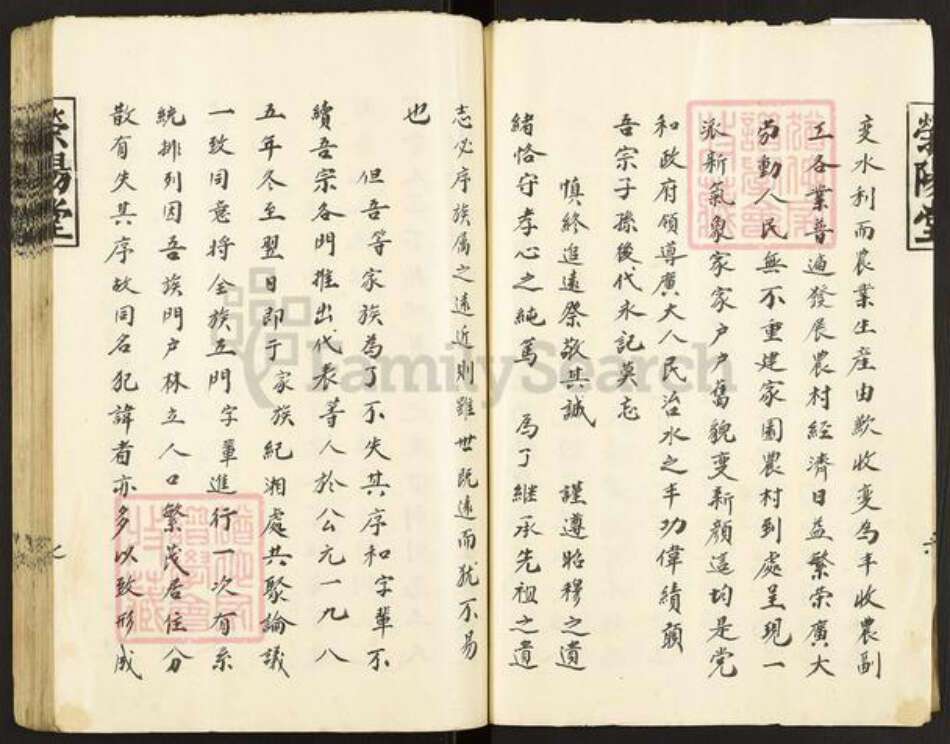 變水利而農業生産由歉收變為丰收農副
工各業普遍發展農村經濟日益繁荣廣大
劳動人民無不重建家園農村到處呈現一
派新氣象家家户户舊貌變新顔這均是党
和政府領導廣大人民治水之丰功偉績願
吾宗子孫後代永記莫忘
慎終追遠祭敬其誠 謹遵昭穆之遺
緒恪守孝心之純篤 為了继承先祖之遺
志必序族属之遠近則雖世既遠而犹不易
也
但吾等家族為了不失其序和字輩不
續吾宗各門推出代表等人於公元一九八
五年冬至翌日即于家族紀湘處共聚論議
一致同意将全族五門字輩進行一次有系
統排列因吾族門户林立人口繁茂居住分
散有失其序故同名犯諱者亦多以致形成
荥陽堂
荥陽堂
七
FamilySearch